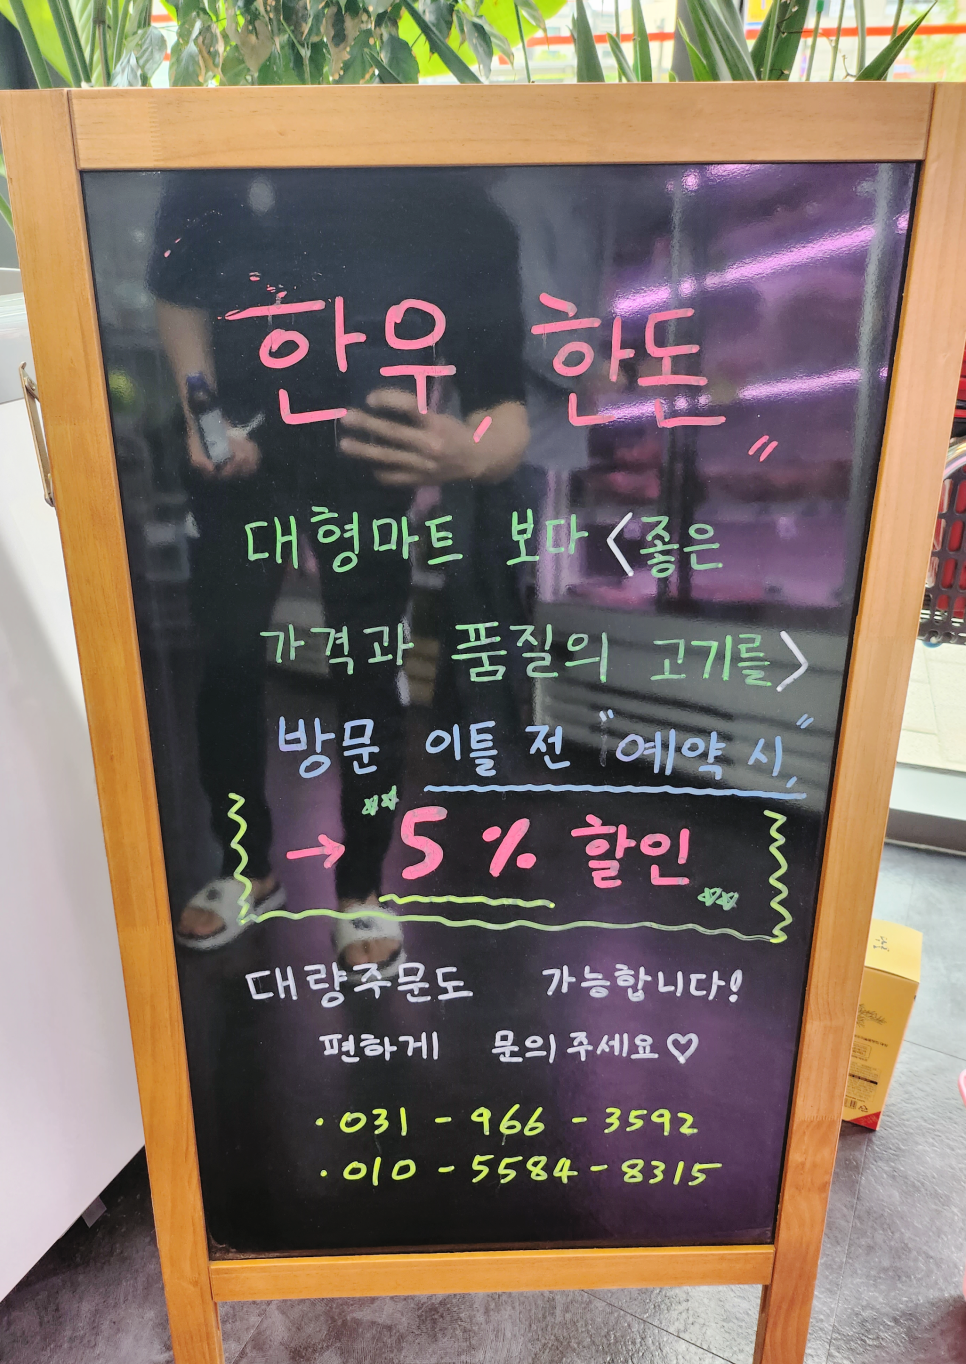 한우, 한돈"
대형마트 보다 <좋은
가격과 품질의 고기를>
방문 이틀 전 "예약 시,"
→ 5% 할인
대량주문도 가능합니다!
편하게 문의주세요♡
· 031 - 966 - 3592
· 010 - 5584 - 8315